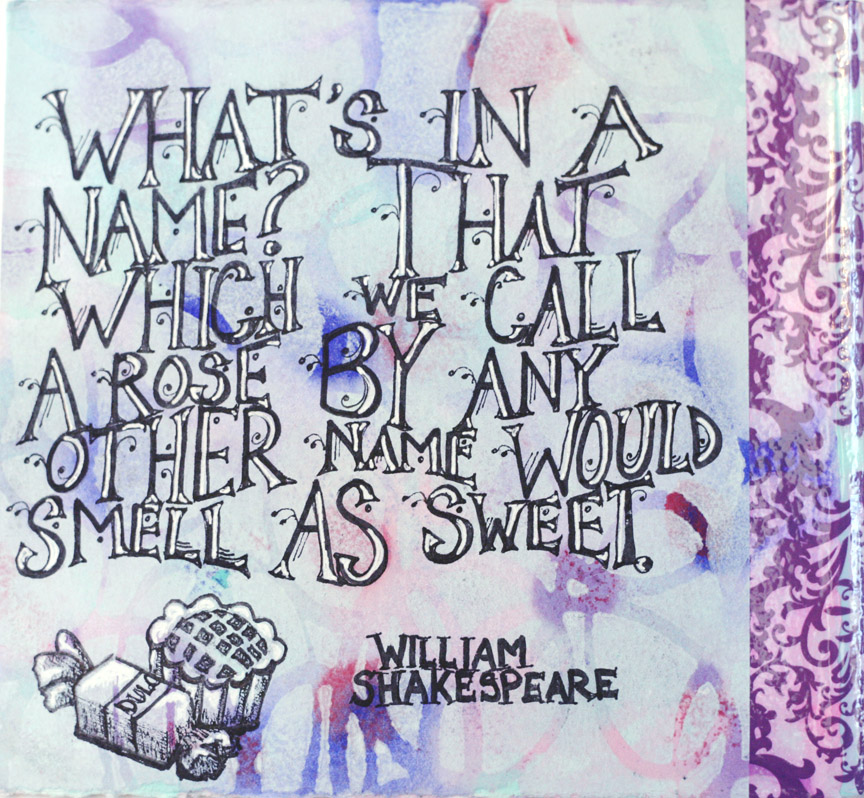 WHAT'S IN A
NAME? THAT
WHICH WE CALL
A ROSE BY ANY
OTHER NAME WOULD
SMELL AS SWEET.
WILLIAM
SHAKESPEARE